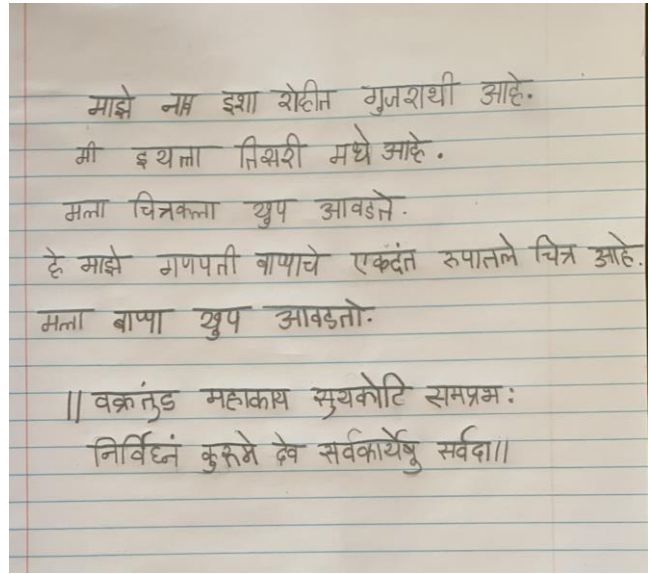 माझे नाम इशा रोहीत गुजराथी आहे.
मी इयत्ता तिसरी मधे आहे.
मला चित्रकला खुप आवडते.
हे माझे गणपती बाप्पाचे एकदंत रुपातले चित्र आहे.
मला बाप्पा खुप आवडतो.
|| वक्रतुंड महाकाय सुयकोटि समप्रभ:
निर्विघ्नं कुरुमे देव सर्वकार्येषु सर्वदा||